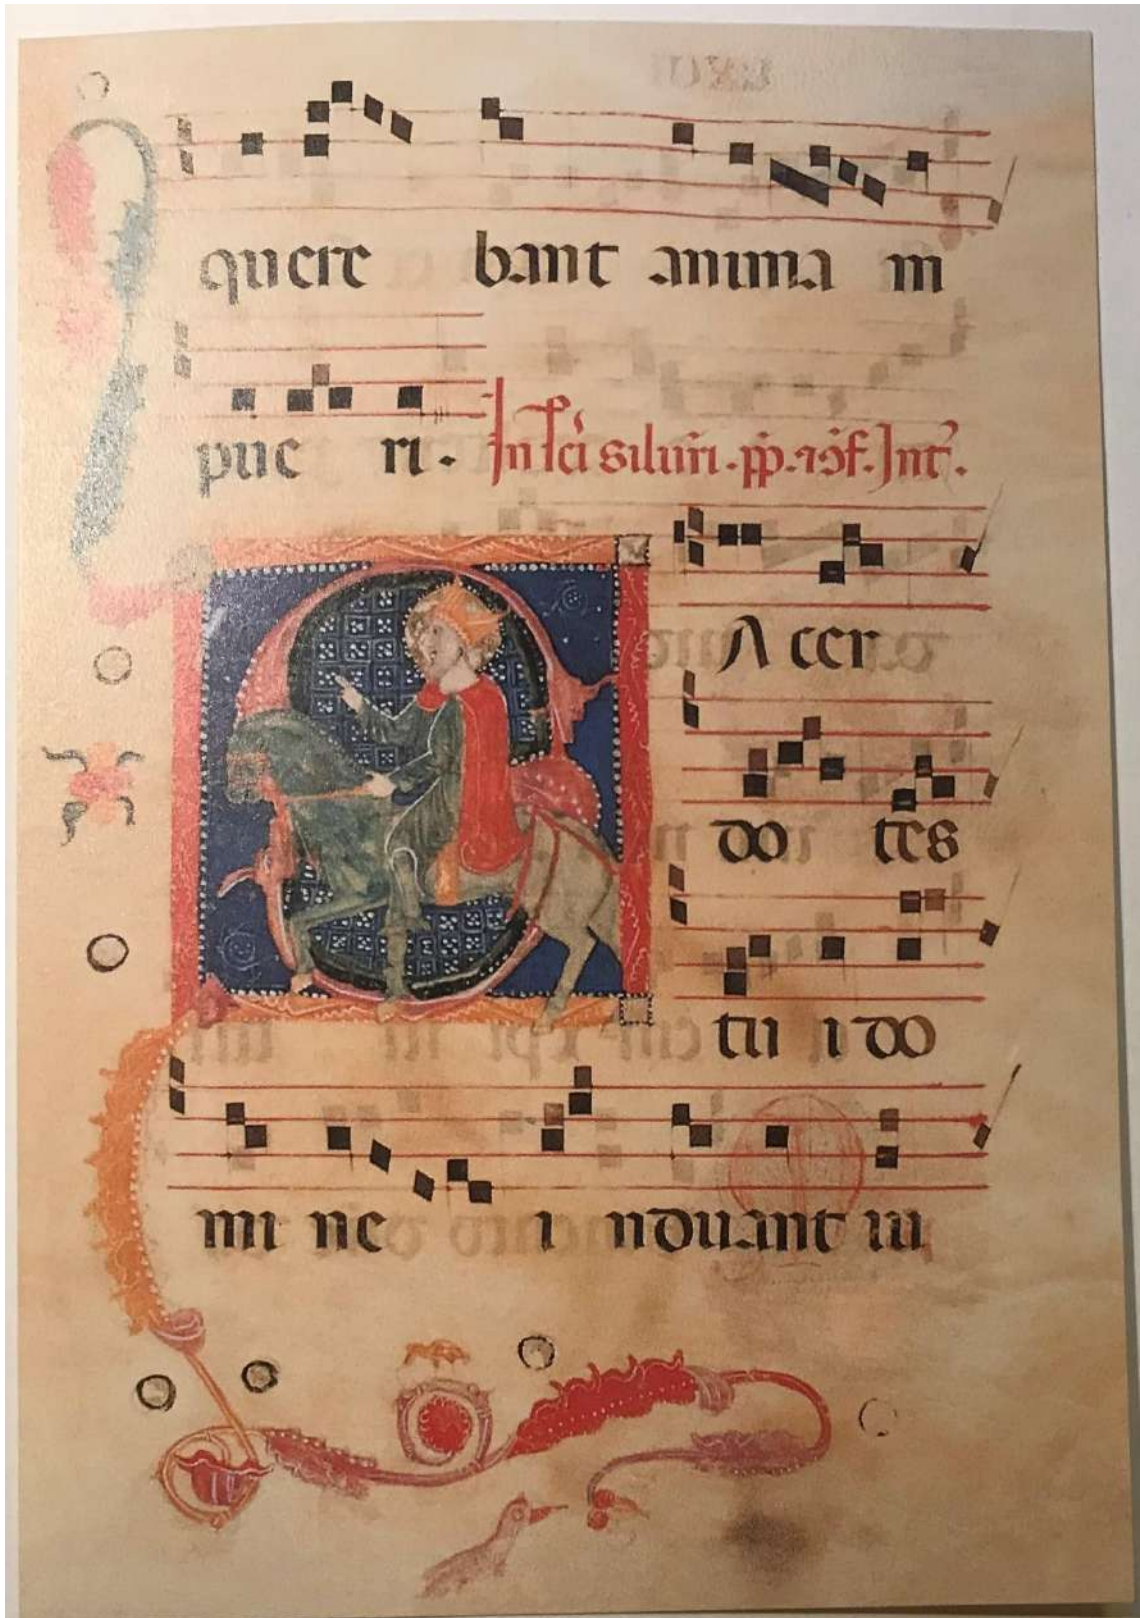 quere bant anima m
pue ri. In sc̄i silūri. pp̄. ⁊ ɔf. Int̄.
S A cer
do tes
tu i do
mi ne i nduant iu